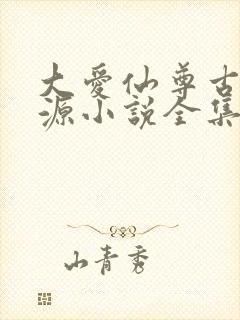 大爱仙尊古
源小说全集
山青秀